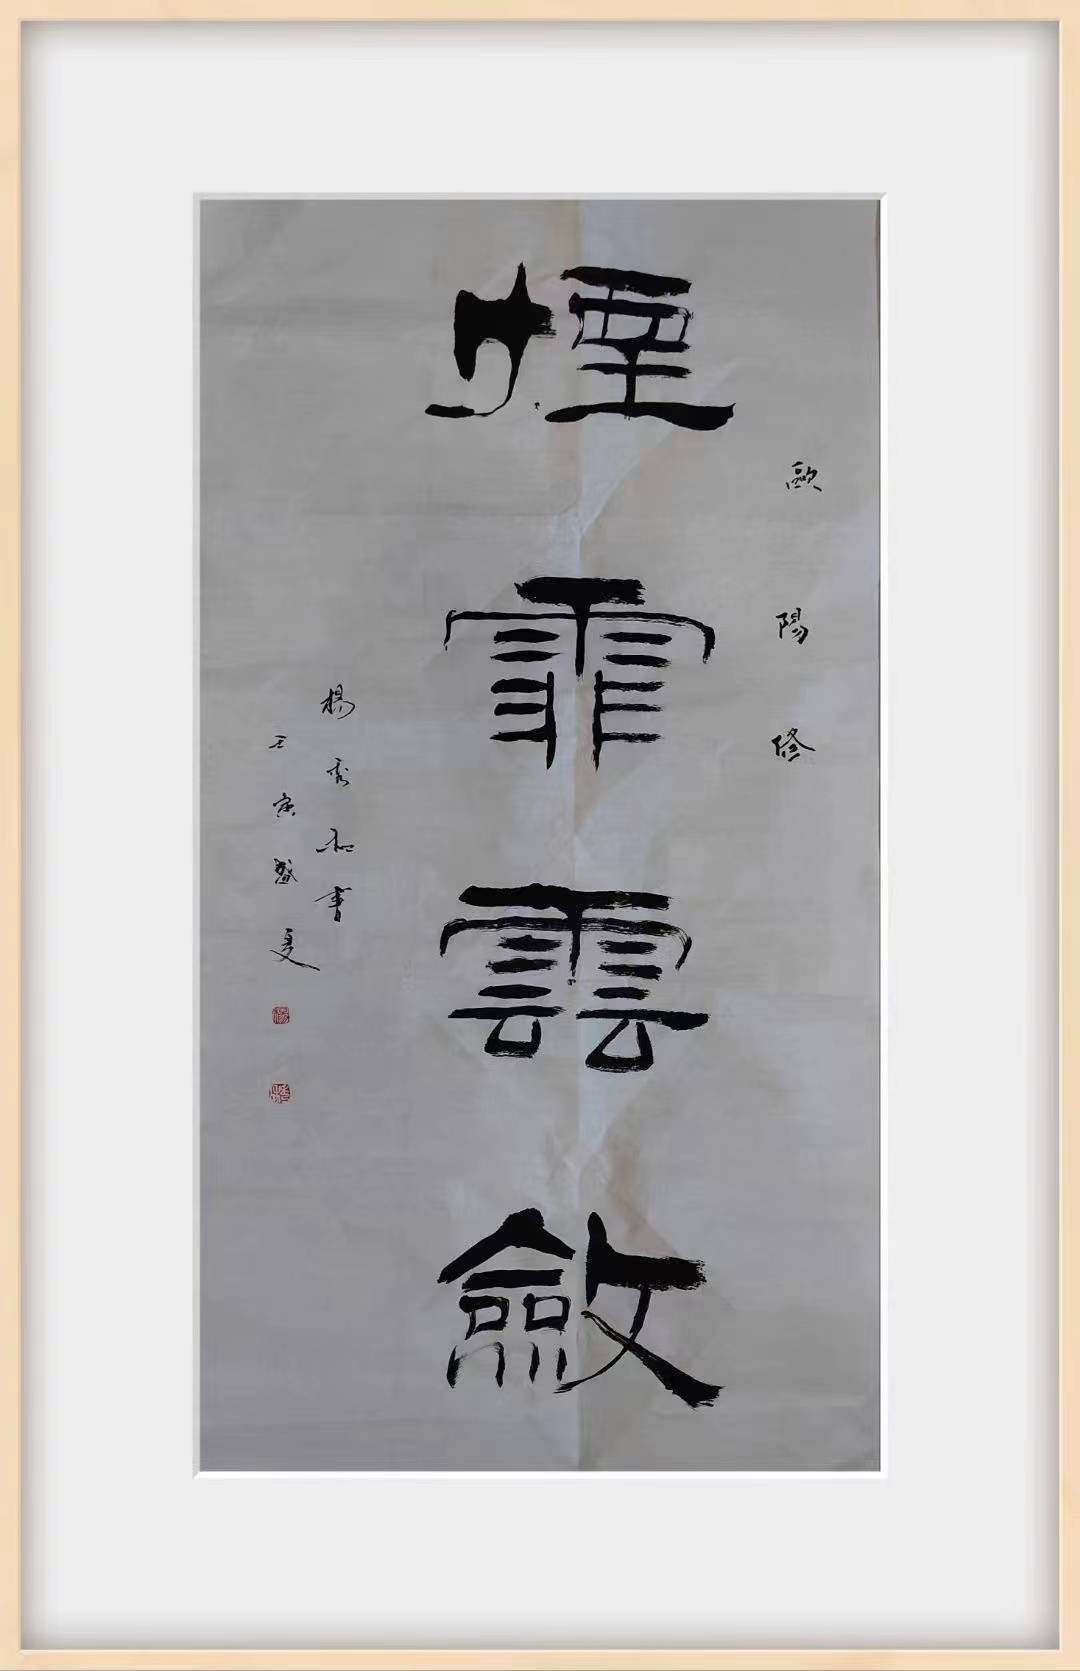 歐陽修
煙霏雲斂
楊和書
壬寅盛夏